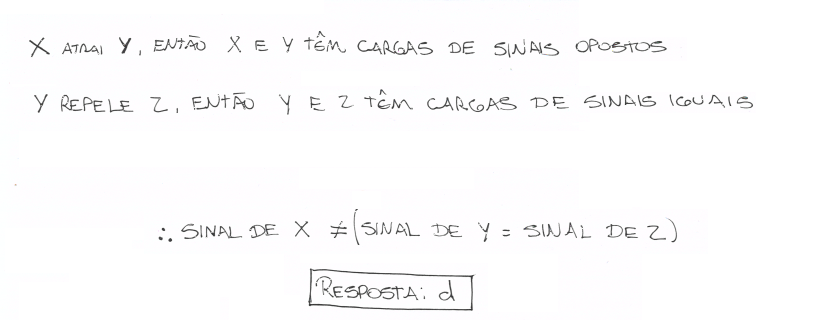 X ATRAI Y, ENTÃO X E Y TÊM CARGAS DE SINAIS OPOSTOS
Y REPELE Z, ENTÃO Y E Z TÊM CARGAS DE SINAIS IGUAIS
∴ SINAL DE X ≠ (SINAL DE Y = SINAL DE Z)
RESPOSTA: d